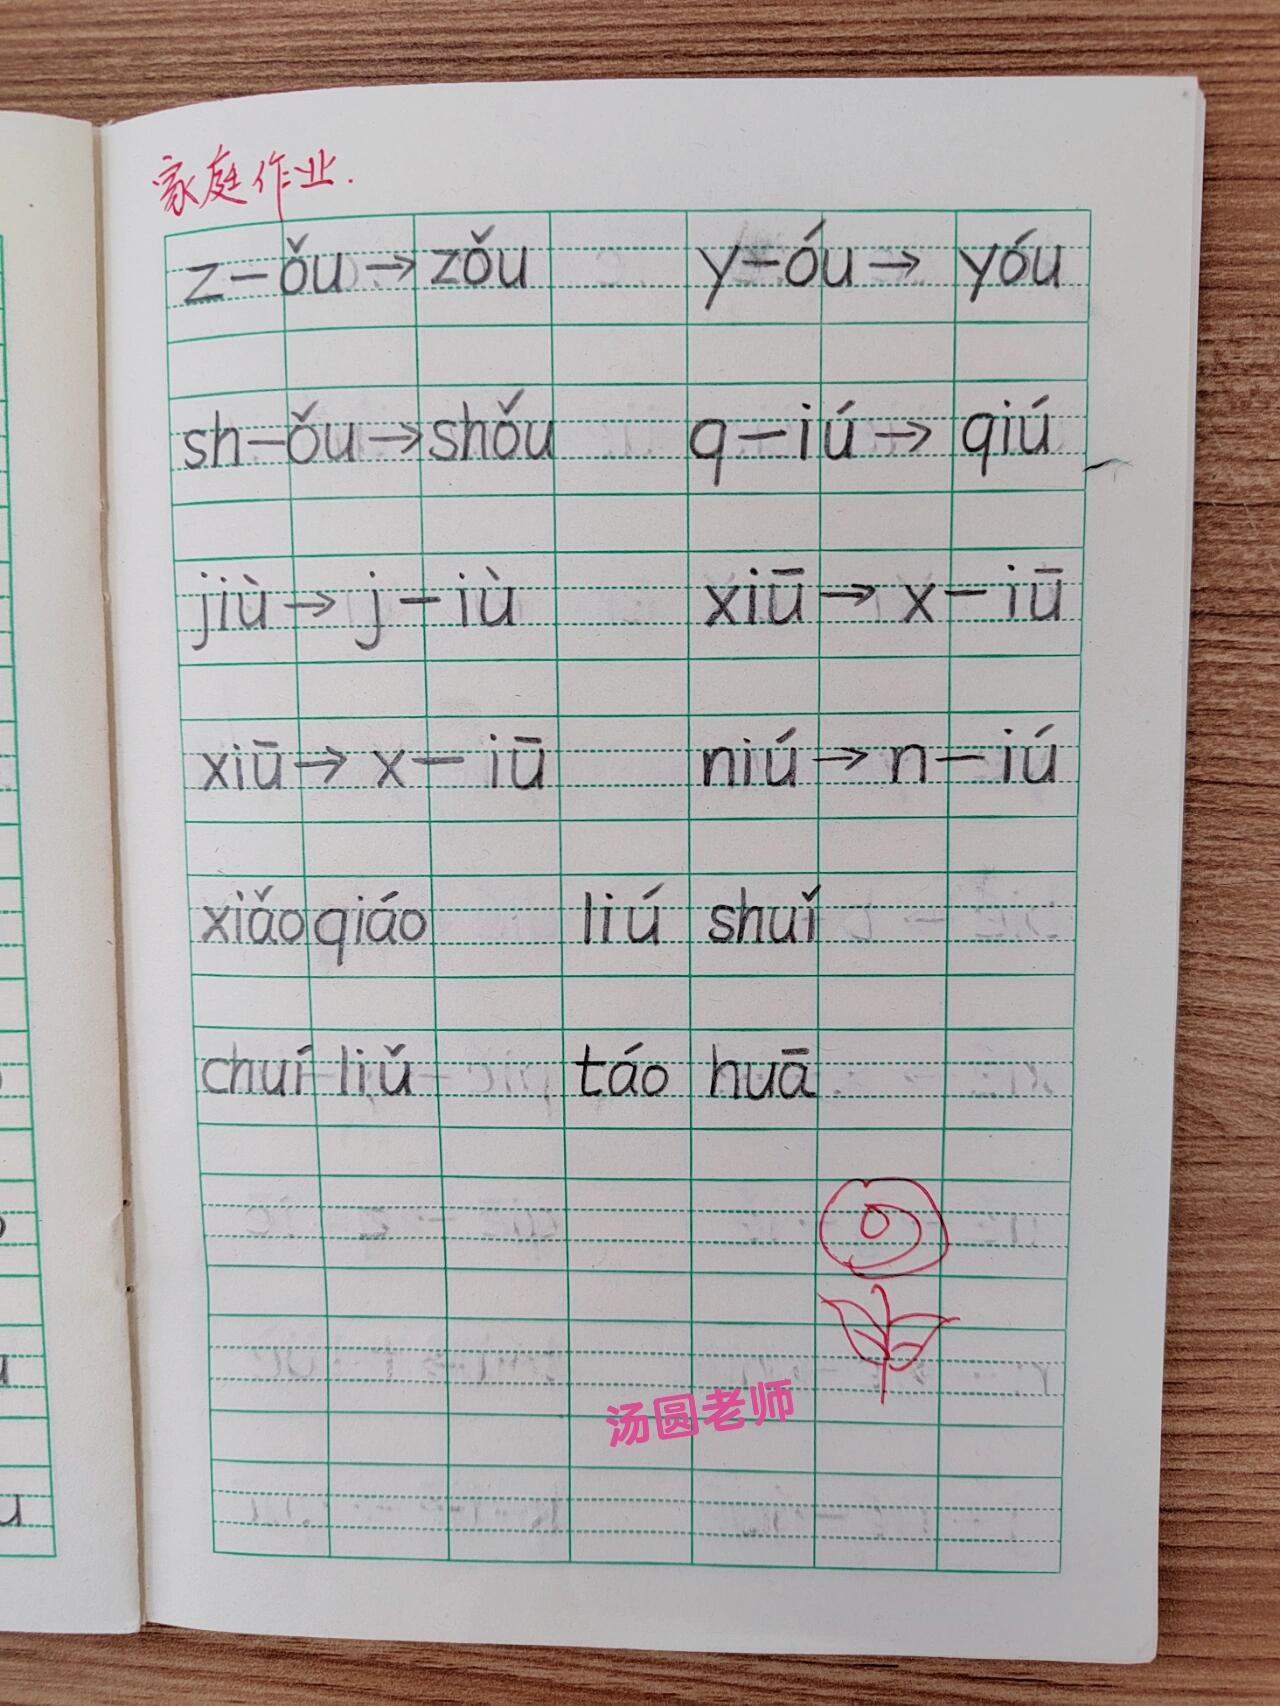 家庭作业.
z－ǒu→zǒu y－óu→yóu
sh－ǒu→shǒu q－iú→qiú
jiù→j－iù xiū→x－iū
xiū→x－iū niú→n－iú
xiǎo qiáo liú shuǐ
chuí liǔ táo huā
汤圆老师